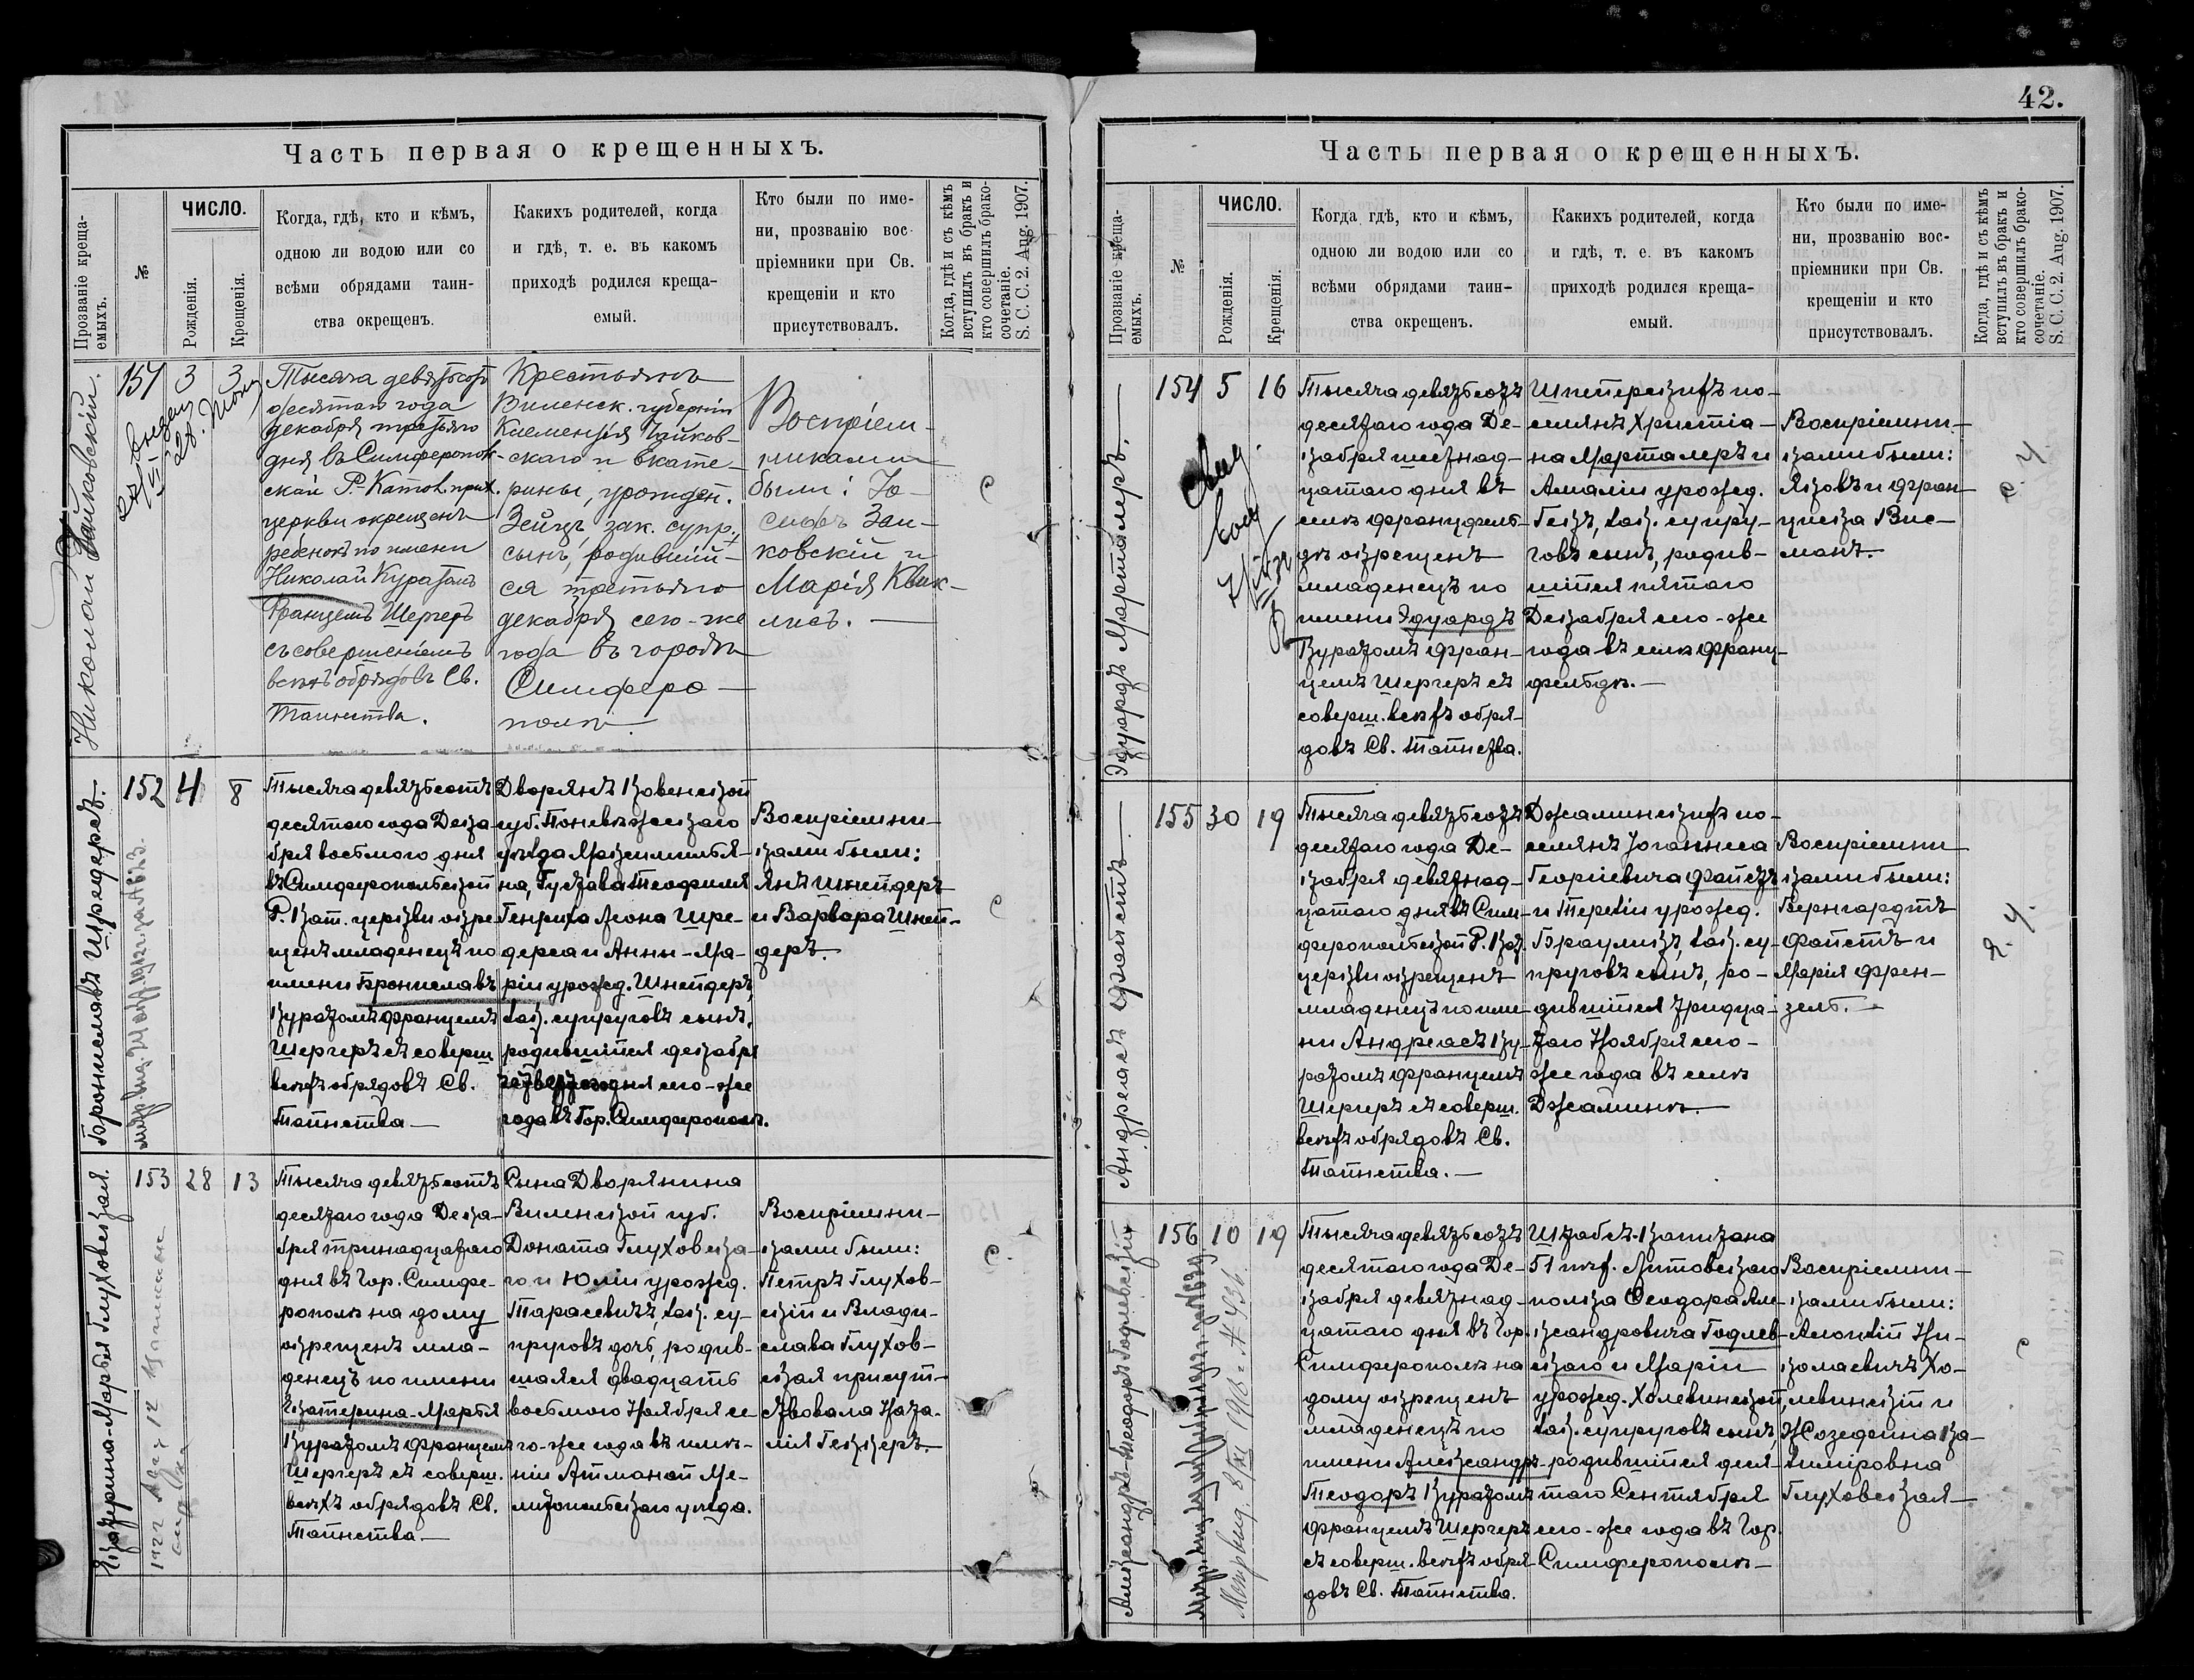 42.
Часть первая о крещенныхъ.
Прозваніе креща-
емыхъ.
№
ЧИСЛО.
Рожденія.
Крещенія.
Когда, гдѣ, кто и кѣмъ,
одною ли водою или со
всѣми обрядами таин-
ства окрещенъ.
Какихъ родителей, когда
и гдѣ, т. е. въ какомъ
приходѣ родился креща-
емый.
Кто были по име-
ни, прозванію вос-
пріемники при Св.
крещеніи и кто
присутствовалъ.
Когда, гдѣ и съ кѣмъ
вступилъ въ бракъ и
кто совершилъ брако-
сочетаніе.
S. C. C. 2. Aug. 1907.
Николай Чайковскій.
151
3
3
Тысяча девятьсотъ
десятаго года
декабря третьяго
дня въ Симферополь-
ской Р.-Катол. прих.
церкви окрещенъ
ребенокъ по имени
Николай Куратомъ
Францемъ Шергеръ
съ совершеніемъ
всѣхъ обрядовъ Св.
Таинства.
Крестьянъ
Виленск. губерніи
Клеменція Чайков-
скаго и Екате-
рины, урожден.
Зейцъ, зак. супр.
сынъ, родившій-
ся третьяго
декабря сего-же
года въ городѣ
Симферо-
полѣ.
Воспріем-
никами
были: Іо-
сифъ Зай-
ковскій и
Марія Квик-
лисъ.
с
Брониславъ Шредерсъ.
152
4
8
Тысяча девятьсотъ
десятаго года Дека-
бря восьмого дня
въ Симферопольской
Р. Кат. церкви окре-
щенъ младенецъ по
имени Брониславъ
Куратомъ Францемъ
Шергеръ съ соверш.
всѣхъ обрядовъ Св.
Таинства
Дворянъ Ковенской
губ. Поневѣжскаго
уѣзда Максимилья-
на, Густава Теофиля
Генриха Леона Шре-
дерса и Анны-Ма-
ріи урожд. Шнейдеръ,
зак. супруговъ сынъ,
родившійся декабря
четвертаго дня сего-же
года въ Гор. Симферополѣ.
Воспріемни-
ками были:
Янъ Шнейдеръ
и Варвара Шней-
деръ.
с
Екатерина-Марья Глуховская.
153
28
13
Тысяча девятьсотъ
десятаго года Дека-
бря тринадцатаго
дня въ Гор. Симфе-
рополѣ на дому
окрещенъ мла-
денецъ по имени
Екатерина-Марья
Куратомъ Францемъ
Шергеръ съ соверш.
всѣхъ обрядовъ Св.
Таинства
Сына Дворянина
Виленской губ.
Доната Глуховска-
го и Юліи урожд.
Тарасевичъ, зак. су-
пруговъ дочь, родив-
шаяся двадцать
восьмого Ноября се-
го-же года въ имѣ-
ніи Атманай Ме-
литопольскаго уѣзда.
Воспріемни-
ками были:
Петръ Глухов-
скій и Влади-
слава Глухов-
ская присут-
ствовала Ната-
лія Геккеръ.
с
Часть первая о крещенныхъ.
Прозваніе креща-
емыхъ.
№
ЧИСЛО.
Рожденія.
Крещенія.
Когда гдѣ, кто и кѣмъ,
одною ли водою или со
всѣми обрядами таин-
ства окрещенъ.
Какихъ родителей, когда
и гдѣ, т. е. въ какомъ
приходѣ родился креща-
емый.
Кто были по име-
ни, прозванію вос-
пріемники при Св.
крещеніи и кто
присутствовалъ.
Когда, гдѣ и съ кѣмъ
вступилъ въ бракъ и
кто совершилъ брако-
сочетаніе.
S. C. C. 2. Aug. 1907.
Эдуардъ Марталеръ.
154
5
16
Тысяча девятьсотъ
десятаго года Де-
кабря шестнад-
цатаго дня въ
селѣ Францфель-
дѣ окрещенъ
младенецъ по
имени Эдуардъ
Куратомъ Фран-
цемъ Шергеръ съ
соверш. всѣхъ обря-
довъ Св. Таинства.
Шпетерскихъ по-
селянъ Христіа-
на Марталеръ и
Амаліи урожд.
Гекъ, зак. супру-
говъ сынъ, родив-
шійся пятаго
Декабря сего-же
года въ селѣ Франц-
фельдѣ.
Воспріемни-
ками были:
Яковъ и Фран-
циска Вис-
манъ.
Андреасъ Файстъ
155
30
19
Тысяча девятьсотъ
десятаго года Де-
кабря девятнад-
цатаго дня въ Сим-
феропольской Р. Кат.
церкви окрещенъ
младенецъ по име-
ни Андреасъ Ку-
ратомъ Францемъ
Шергеръ съ соверш.
всѣхъ обрядовъ Св.
Таинства.
Джаминскихъ по-
селянъ Іоганнеса
Георгіевича Файстъ
и Терезіи урожд.
Браумикъ, зак. су-
пруговъ сынъ, ро-
дившійся тридца-
таго Ноября сего-
же года въ селѣ
Джаминѣ.
Воспріемни
ками были:
Бернгардтъ
Файстъ и
Марія Френ-
зель.
Александръ-Теодоръ Годлевскій
156
10
19
Тысяча девятьсотъ
десятаго года Де-
кабря девятнад-
цатаго дня въ Гор.
Симферополѣ на
дому окрещенъ
младенецъ по
имени Александръ-
Теодоръ Куратомъ
Францемъ Шергеръ
съ соверш. всѣхъ обря-
довъ Св. Таинства.
Штабсъ-Капитана
51 пѣх. Литовскаго
полка Феодора Але-
ксандровича Годлев-
скаго и Маріи
урожд. Холевинской,
зак. супруговъ сынъ,
родившійся деся-
таго Сентября
сего-же года въ Гор.
Симферополѣ
Воспріемни-
ками были:
Леонтій Ни-
колаевичъ Хо-
левинскій и
Жозефина Ка-
зиміровна
Глуховская
с